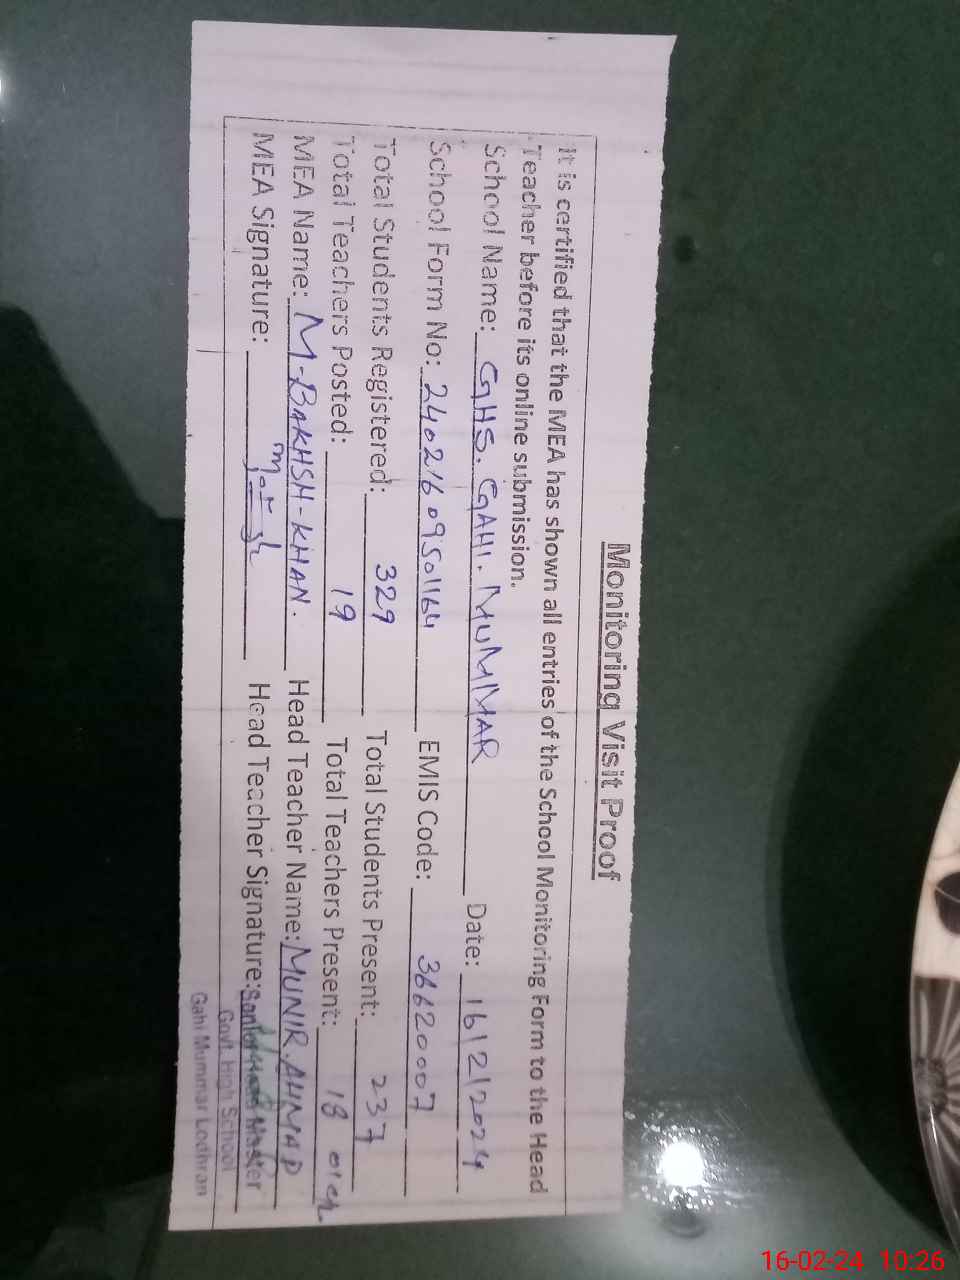 Monitoring Visit Proof
It is certified that the MEA has shown all entries of the School Monitoring Form to the Head
Teacher before its online submission.
School Name: GHS. GAHI. MUMMAR Date: 16/2/2024
School Form No: 24021609501164 EMIS Code: 36620007
Total Students Registered: 329 Total Students Present: 237
Total Teachers Posted: 19 Total Teachers Present: 18
MEA Name: M-BAKHSH-KHAN. Head Teacher Name: MUNIR.AHMAD
MEA Signature: Head Teacher Signature:
Senior Head Master
Govt. High School
Gahi Mummar Lodhran
16-02-24 10:26